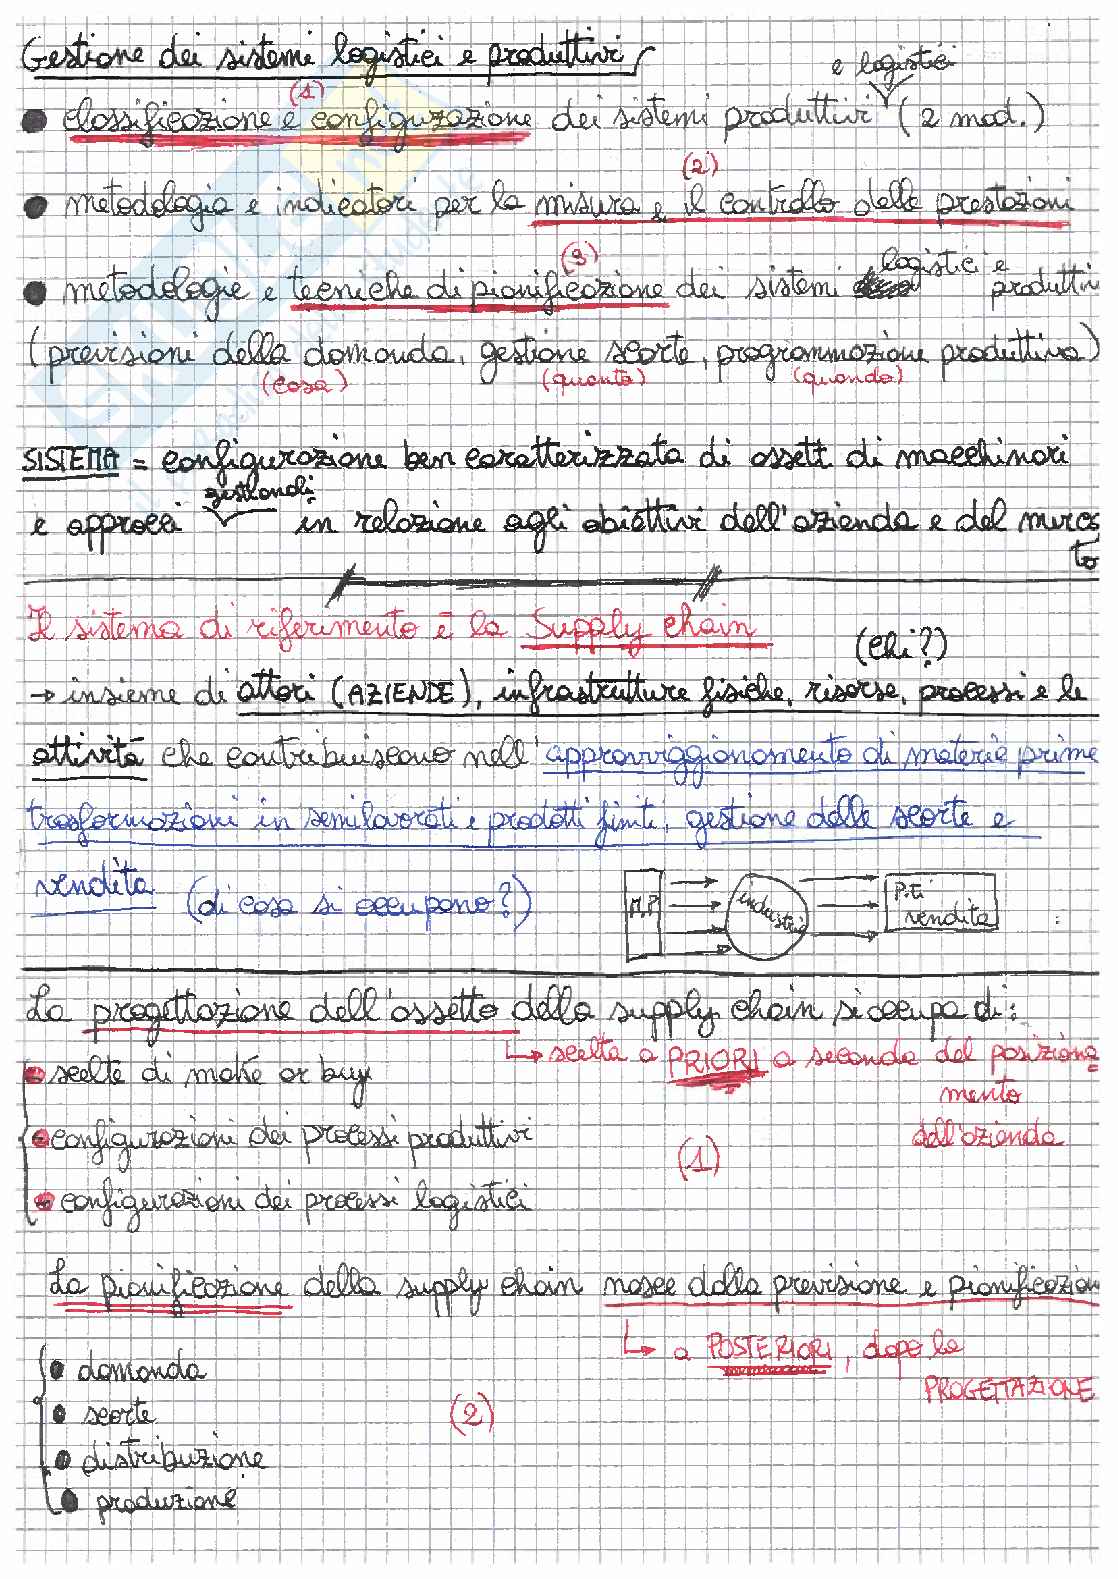 Gestione dei sistemi logistici e produttivi
e logistici
(1)
● classificazione e configurazione dei sistemi produttivi (2 mod.)
(2)
● metodologia e indicatori per la misura e il controllo delle prestazioni
(3)
logistici e
● metodologie e tecniche di pianificazione dei sistemi produttivi
(previsioni della domanda, gestione scorte, programmazione produttiva)
(cosa) (quanto) (quando)
SISTEMA = configurazione ben caratterizzata di assett di macchinari
gestionali
e approcci in relazione agli obiettivi dell'azienda e del merca
to
Il sistema di riferimento è la Supply chain
(chi?)
→ insieme di attori (AZIENDE), infrastrutture fisiche, risorse, processi e le
attività che contribuiscono nell'approvviggionamento di materie prime
trasformazioni in semilavorati e prodotti finiti, gestione delle scorte e
vendita (di cosa si occupano?)
M.P industria P.ti vendita
La progettazione dell'assetto della supply chain si occupa di:
↳ scelta a PRIORI a seconda del posiziona
mento
dell'azienda
● scelte di make or buy
● configurazioni dei processi produttivi
(1)
● configurazioni dei processi logistici
La pianificazione della supply chain nasce dalla previsione e pianificazion
↳ a POSTERIORI, dopo la
PROGETTAZIONE
● domanda
● scorte
(2)
● distribuzione
● produzione